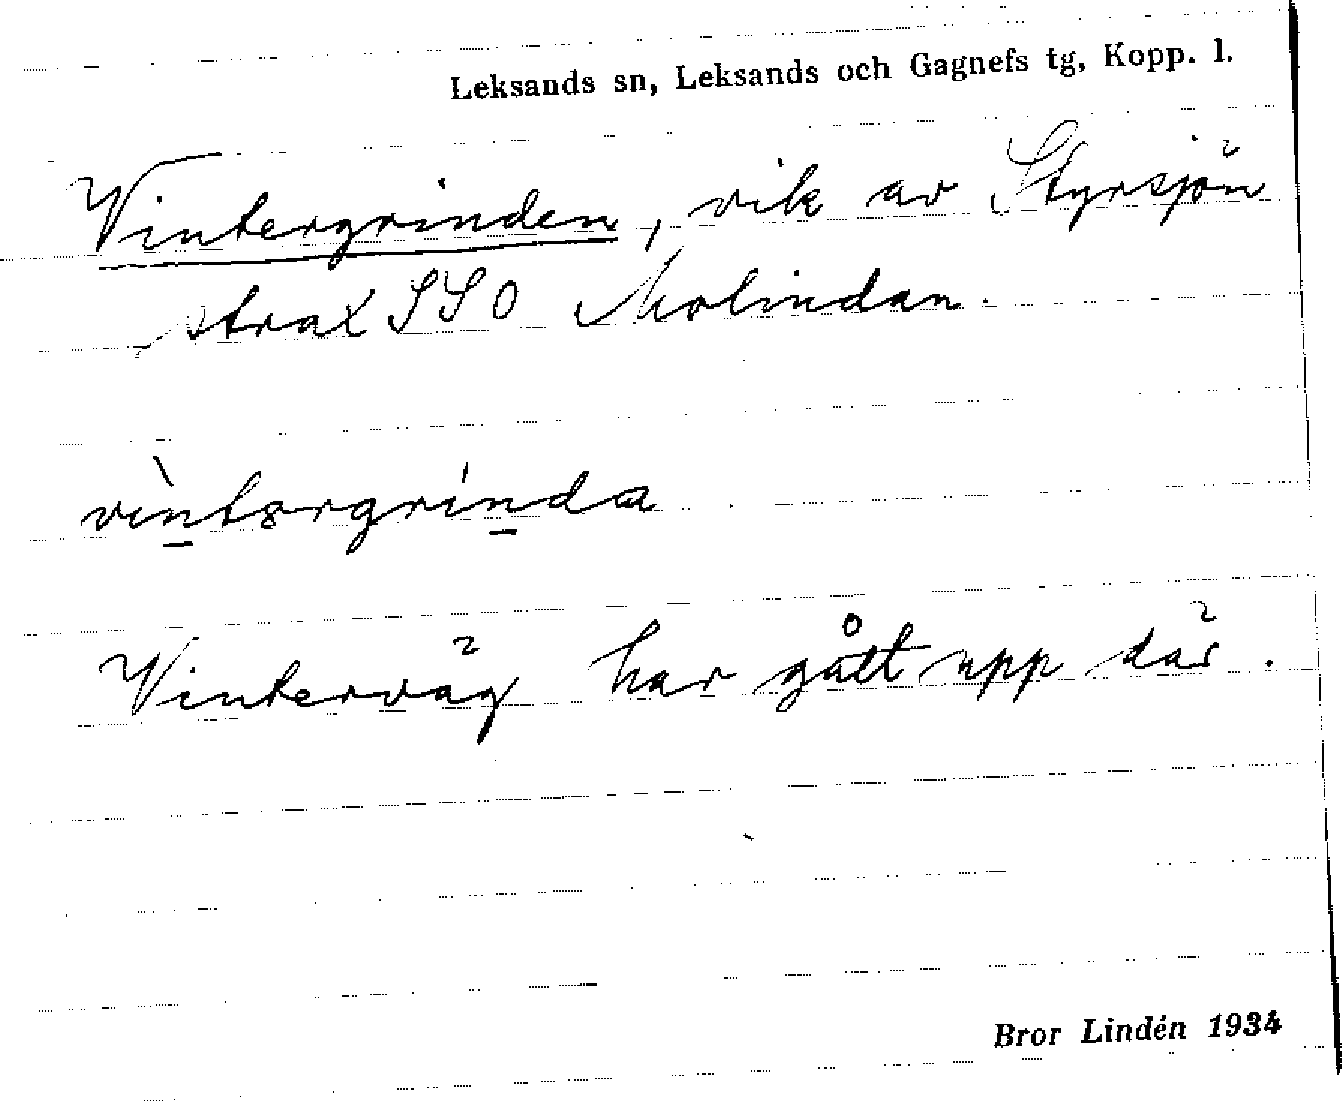 Leksands sn, Leksands och Gagnefs tg, Kopp. l.
Vintergrinden, vik av Styrsjön
strax SSO Molindan.
vìntərgrinda
Winterväg har gått upp där.
Bror Lindén 1934